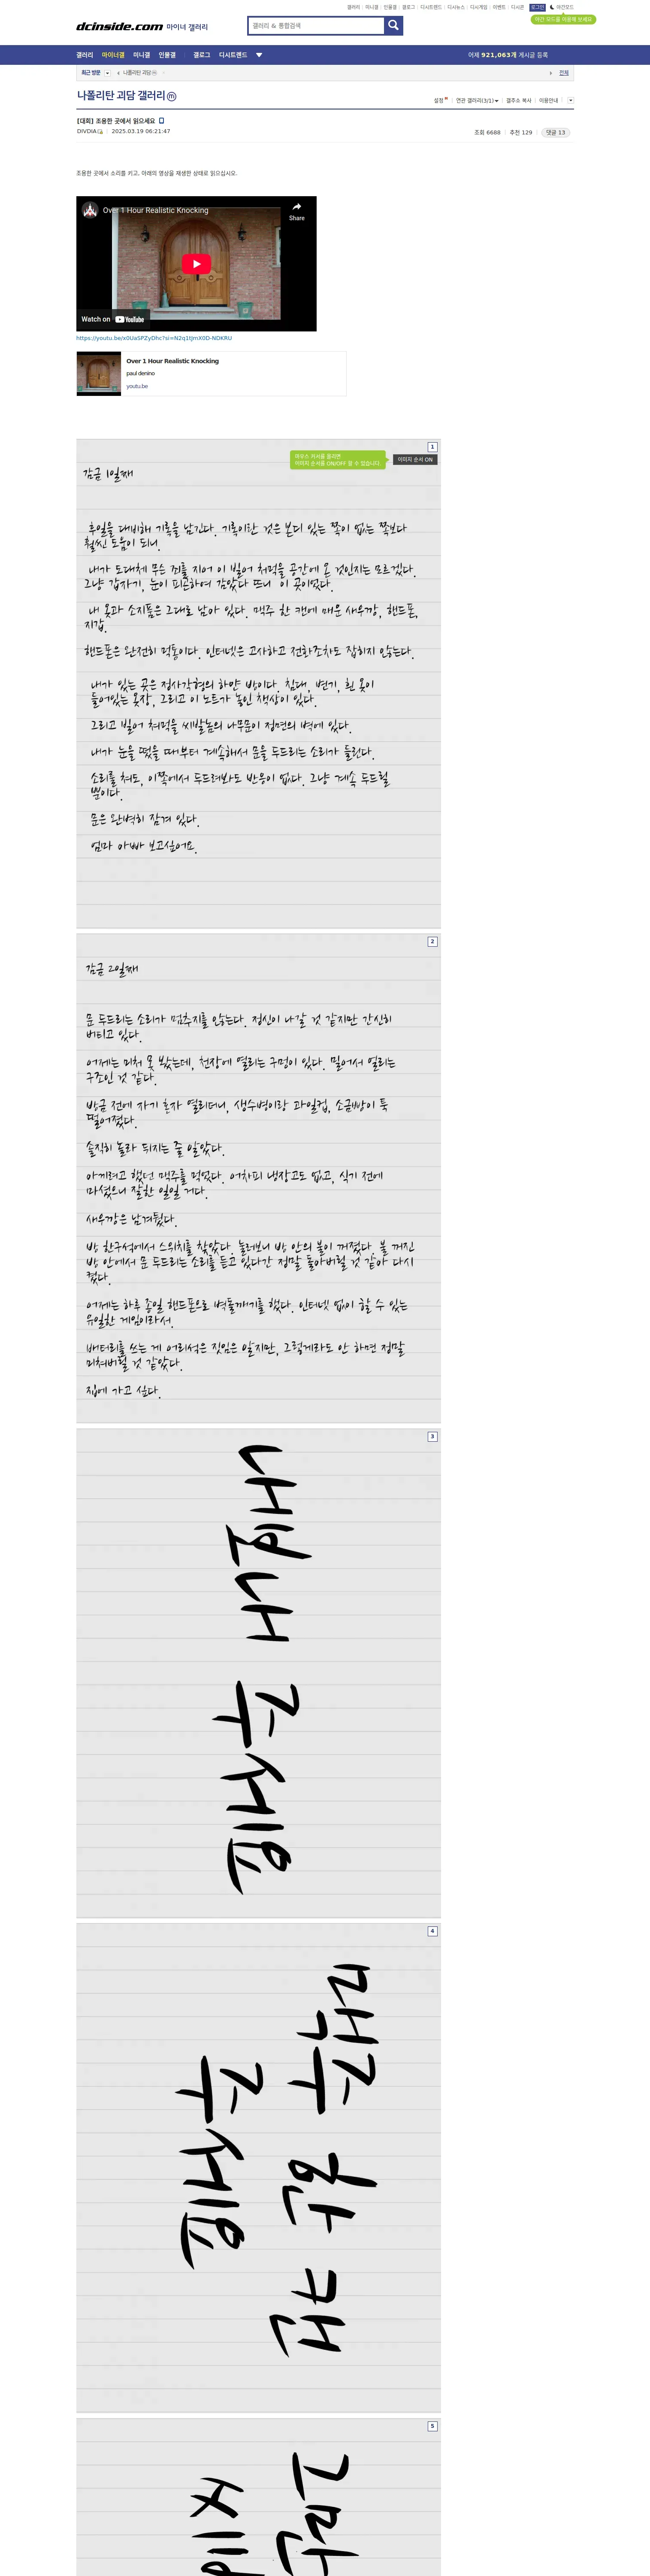 갤러리 미니갤 인물갤 갤로그 디시트렌드 디시뉴스 디시게임 이벤트 디시콘 로그인 야간모드
야간 모드를 이용해 보세요
dcinside.com 마이너 갤러리
갤러리 & 통합검색
갤러리 마이너갤 미니갤 인물갤 갤로그 디시트렌드
어제 921,063개 게시글 등록
최근 방문 나폴리탄 괴담ⓜ 전체
나폴리탄 괴담 갤러리ⓜ
설정 연관 갤러리(3/1) 갤주소 복사 이용안내
[대회] 조용한 곳에서 읽으세요
DIVDIA 2025.03.19 06:21:47
조회 6688 추천 129 댓글 13
조용한 곳에서 소리를 키고, 아래의 영상을 재생한 상태로 읽으십시오.
Over 1 Hour Realistic Knocking
Share
Watch on YouTube
https://youtu.be/x0UaSPZyDhc?si=N2q1tJmX0D-NDKRU
Over 1 Hour Realistic Knocking
paul denino
youtu.be
1
마우스 커서를 올리면
이미지 순서를 ON/OFF 할 수 있습니다.
이미지 순서 ON
감금 1일째
후일을 대비해 기록을 남긴다. 기록이란 것은 본디 있는 쪽이 없는 쪽보다
훨씬 도움이 되니.
내가 도대체 무슨 죄를 지어 이 빌어 쳐먹을 공간에 온 것인지는 모르겠다.
그냥 갑자기, 눈이 피곤하여 감았다 뜨니 이 곳이었다.
내 옷과 소지품은 그대로 남아 있다. 맥주 한 캔에 매운 새우깡, 핸드폰,
지갑.
핸드폰은 완전히 먹통이다. 인터넷은 고사하고 전화조차도 잡히지 않는다.
내가 있는 곳은 정사각형의 하얀 방이다. 침대, 변기, 흰 옷이
들어있는 옷장, 그리고 이 노트가 놓인 책상이 있다.
그리고 빌어 쳐먹을 씨발놈의 나무문이 정면의 벽에 있다.
내가 눈을 떴을 때부터 계속해서 문을 두드리는 소리가 들린다.
소리를 쳐도, 이쪽에서 두드려봐도 반응이 없다. 그냥 계속 두드릴
뿐이다.
문은 완벽히 잠겨 있다.
엄마 아빠 보고싶어요.
2
감금 2일째
문 두드리는 소리가 멈추지를 않는다. 정신이 나갈 것 같지만 간신히
버티고 있다.
어제는 미처 못 봤는데, 천장에 열리는 구멍이 있다. 밀어서 열리는
구조인 것 같다.
방금 전에 자기 혼자 열리더니, 생수병이랑 과일컵, 소금빵이 툭
떨어졌다.
솔직히 놀라 뒤지는 줄 알았다.
아끼려고 했던 맥주를 먹었다. 어차피 냉장고도 없고, 식기 전에
마셨으니 잘한 일일 거다.
새우깡은 남겨뒀다.
방 한구석에서 스위치를 찾았다. 눌러보니 방 안의 불이 꺼졌다. 불 꺼진
방 안에서 문 두드리는 소리를 듣고 있다간 정말 돌아버릴 것 같아 다시
켰다.
어제는 하루 종일 핸드폰으로 벽돌깨기를 했다. 인터넷 없이 할 수 있는
유일한 게임이라서.
배터리를 쓰는 게 어리석은 짓임은 알지만, 그렇게라도 안 하면 정말
미쳐버릴 것 같았다.
집에 가고 싶다.
3
4
5